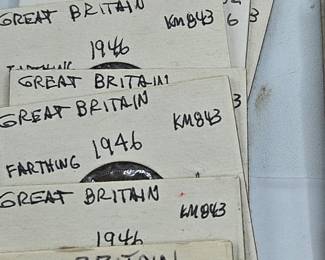 GREAT BRITAIN
KM843
6
3
1946
FARTHING
GREAT BRITAIN
3
GREAT BRITAIN
KM843
1946
FARTHING
GREAT BRITAIN
KM843
1946
BRITAIN